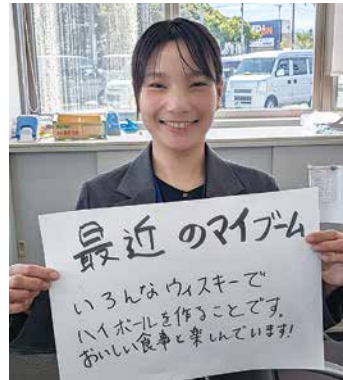 最近のマイブーム
いろんなウィスキーで
ハイボールを作ることです。
おいしい食事と楽しんでいます!